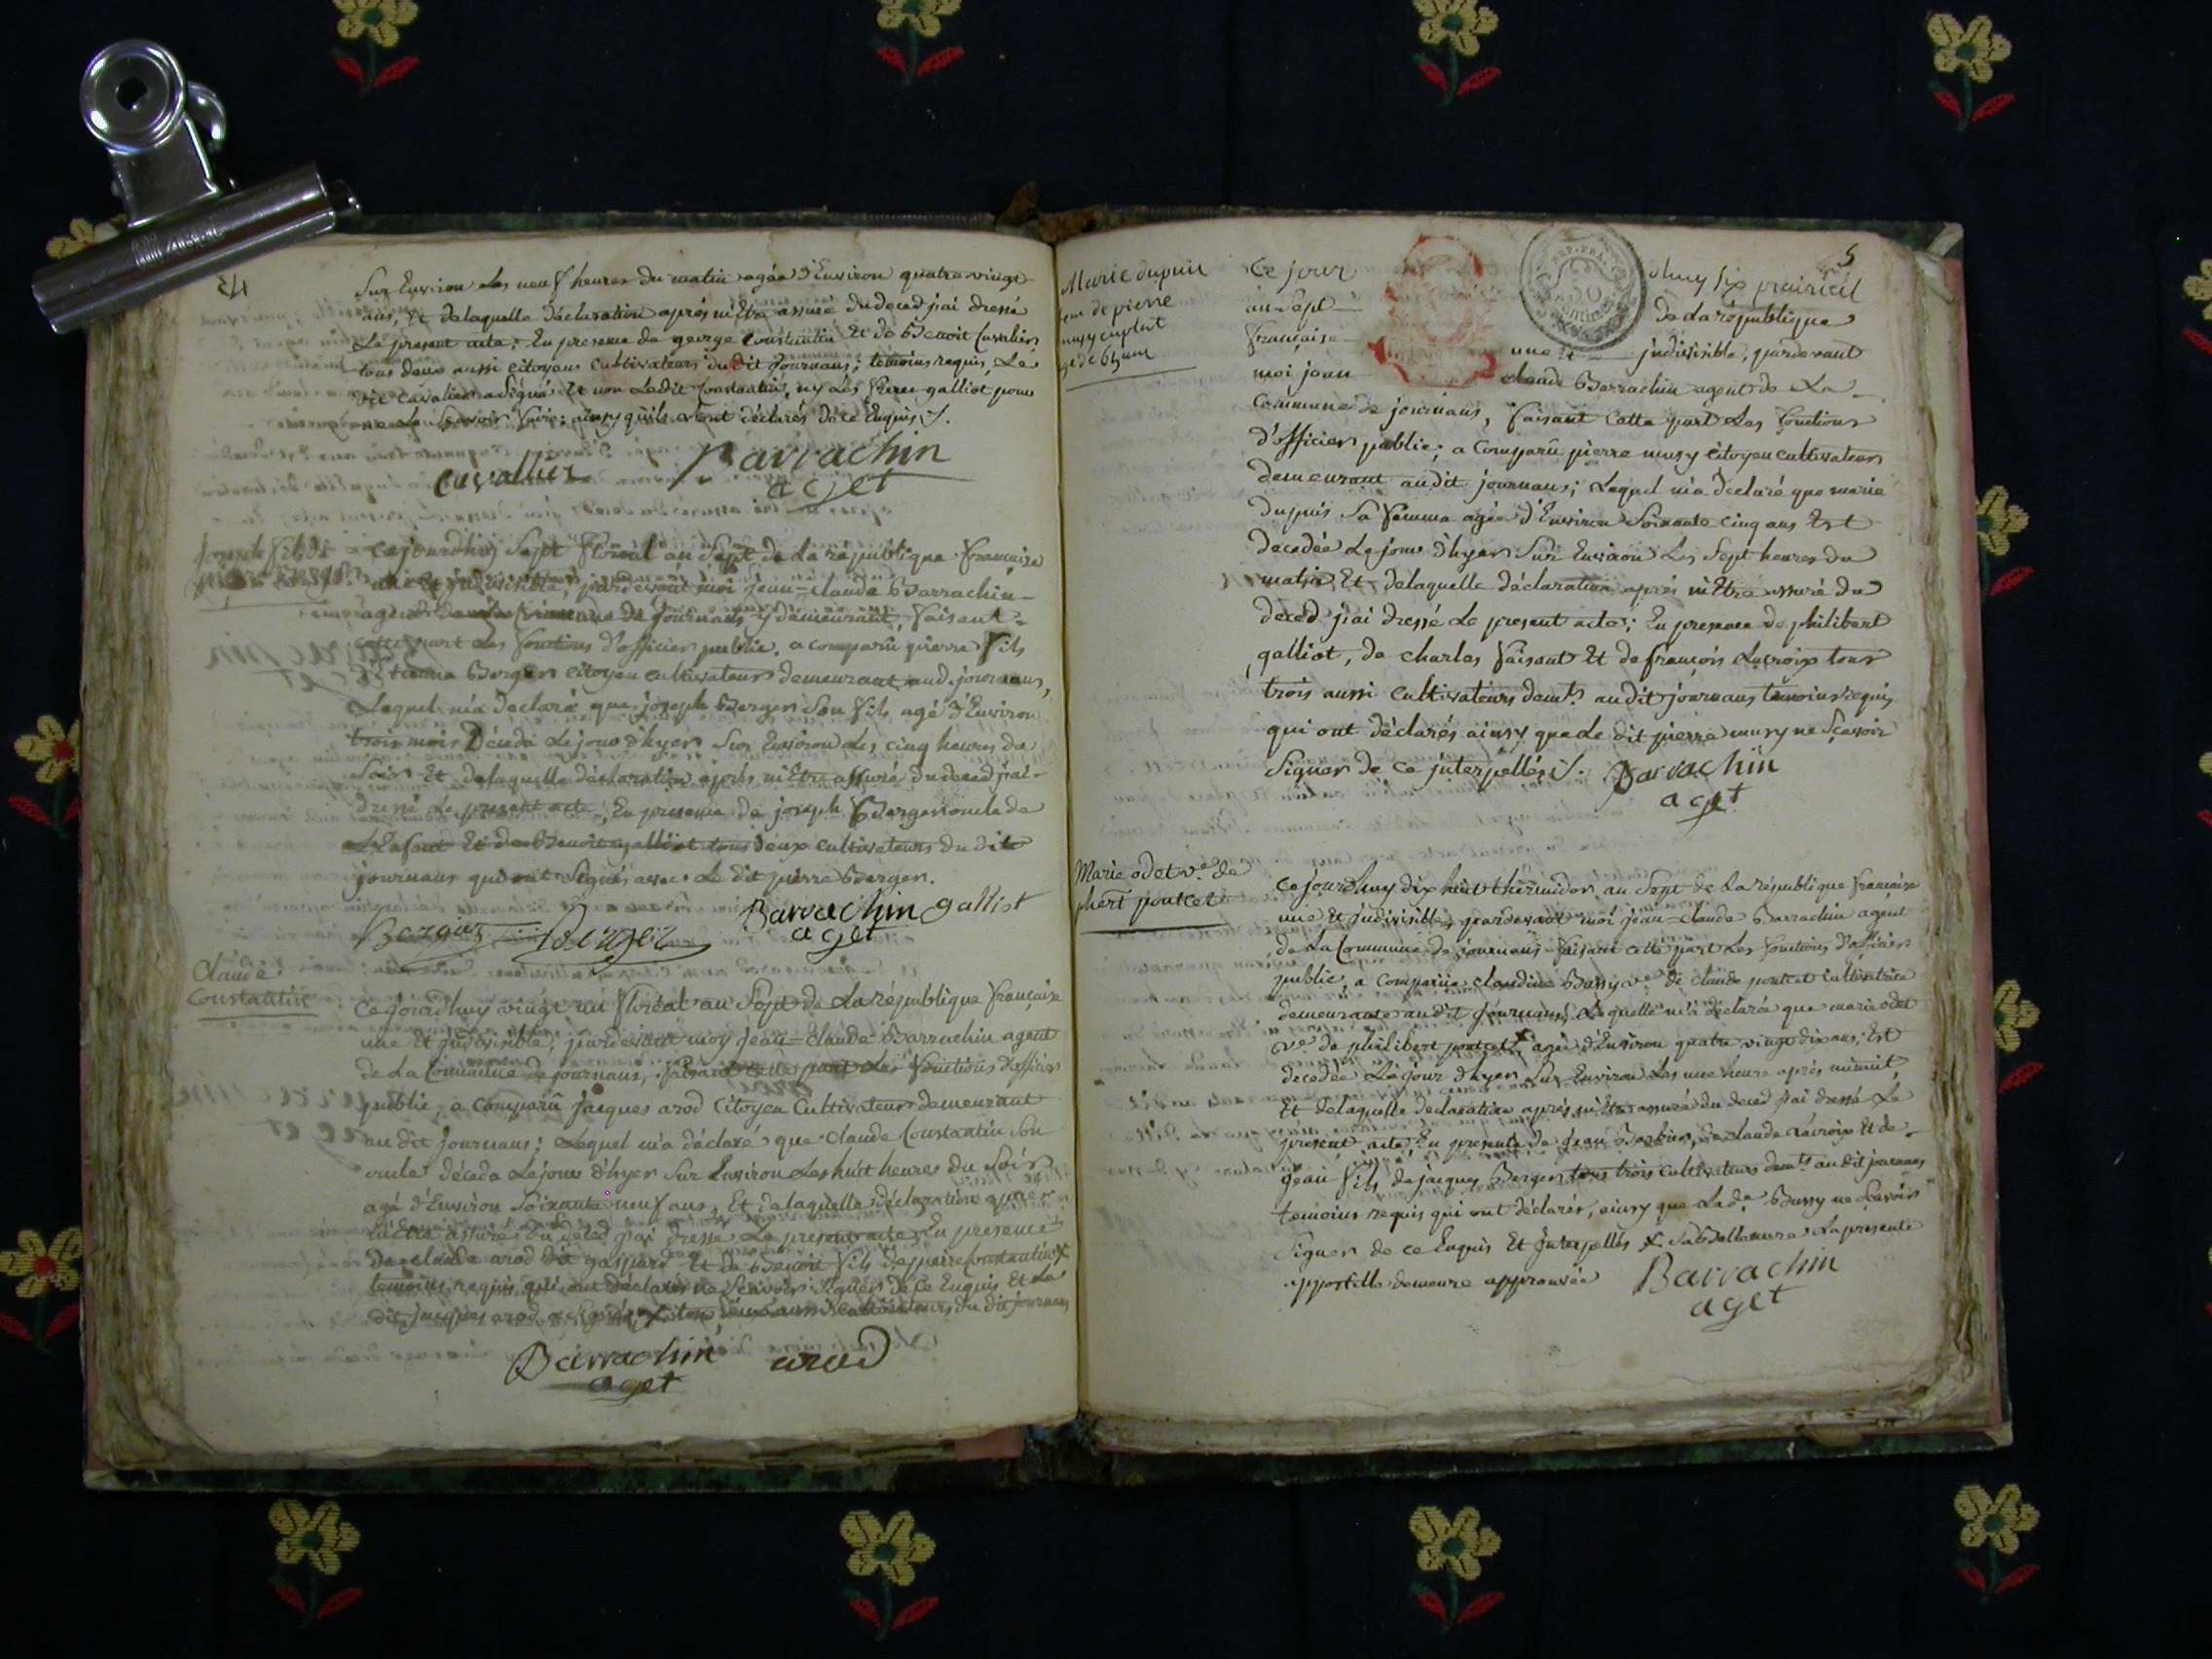 Sur Environ Les neuf heures du matin agée d'Environ quatre vingt
ans, Et delaquelle déclaration aprés m'Etre assuré du deced j'ai dressé
Le present acte; En presence de george Constantin Et de Benoit Cavalier
tous deux aussi citoyens cultivateurs du dit Journans; temoins requis, Le
dit Cavalier a signé Et non Ledit Constantin, ny Les galliot pour
ne Le Sçavoir faire; ainsy qu'ils ont déclarés de ce Enquis ./.
cavallier Barrachin
aget
joseph fils de
cejourdhuy Sept floreal an Sept de La république française
une Et indivisible, pardevant moi jean=claude Barrachin
agent de la Commune de Journans y demeurant, faisant
cette part Les fonctions d'officier public, a comparû pierre fils
Etienne Berger citoyen cultivateur demeurant aud. journans,
Lequel m'a declaré que joseph Berger Son fils agé d'Environ
trois mois Décéda Le jour d'hyer Sur Environ Les cinq heures du
Soir Et delaquelle déclaration aprés m'Etre assuré du deced j'ai
dressé Le present acte; En presence de joseph Berger oncle de
L'Enfant Et de Benoit galliot tous deux cultivateurs du dit
journans qui ont Signés avec Le dit pierre Berger.
Berger Berger Barrachin galliot
aget
Claude
Constantin
Cejourdhuy vingt un floréal an Sept de La république française
une Et indivisible; pardevant moy jean=claude Barrachin agent
de La Commune de journans, faisant cette part Les fonctions d'officier
public, a comparû jacques arod Citoyen Cultivateur demeurant
au dit journans; Lequel m'a déclaré que Claude Constantin Son
oncle décéda Le jour d'hyer Sur Environ Les huit heures du Soir
agé d'Environ Soixante neuf ans, Et delaquelle déclaration aprés
m'Etre assuré du deced j'ai dressé Le present acte En presence
de claude arod dit gaspard Et de Benoit fils de pierre Constantin X
temoins requis qui ont déclarés ne Sçavoir Signer de ce Enquis Et Le
dit jacques arod a Signé, X tous deux aussi cultivateurs du dit journans
Barrachin arod
aget
5
Marie dupuis
fem de pierre
musy
agée de 65 ans
Ce jour dhuy Six prairial
an Sept de La république
française une Et indivisible, pardevant
moi jean claude Barrachin agent de La
Commune de journans, faisant cette part Les fonctions
d'officier public; a comparû pierre musy citoyen cultivateur
demeurant audit journans; Lequel m'a declaré que marie
dupuis Sa femme agée d'Environ Soixante cinq ans Est
decedée Le jour d'hyer Sur Environ Les Sept heures du
matin Et delaquelle déclaration aprés m'Etre assuré du
deced j'ai dressé Le present acte; En presence de philibert
galliot, de charles faisant Et de françois Lacroix tous
trois aussi cultivateurs demts. audit journans temoins requis
qui ont déclarés ainsy que Le dit pierre musy ne Sçavoir
Signer de ce interpellés ./. Barrachin
aget
Marie odet ve. de
phert poncet
cejourdhuy dix huit thermidor an Sept de La république française
une Et indivisible, pardevant moi jean=claude Barrachin agent
de La Commune de journans faisant cette part Les fonctions d'officier
public, a comparue claudine Bussy ve. de claude poncet cultivatrice
demeurante audit journans, Laquelle m'a déclarée que marie odet
ve. de philibert poncet agée d'Environ quatre vingt dix ans; Est
decedée Le jour d'hyer Sur Environ Les une heure aprés minuit,
Et delaquelle declaration aprés m'Etre assuré du deced j'ai dressé Le
present acte, En presence de jean Barbier, de claude Lacroix Et de
jean fils de jacques Berger tous trois cultivateurs demts. au dit journans
temoins requis qui ont déclarés, ainsy que Lade. Bussy ne Sçavoir
Signer de ce Enquis Et Interpellés X Sa Bellemere La presente
appostille demeure approuvée Barrachin
aget